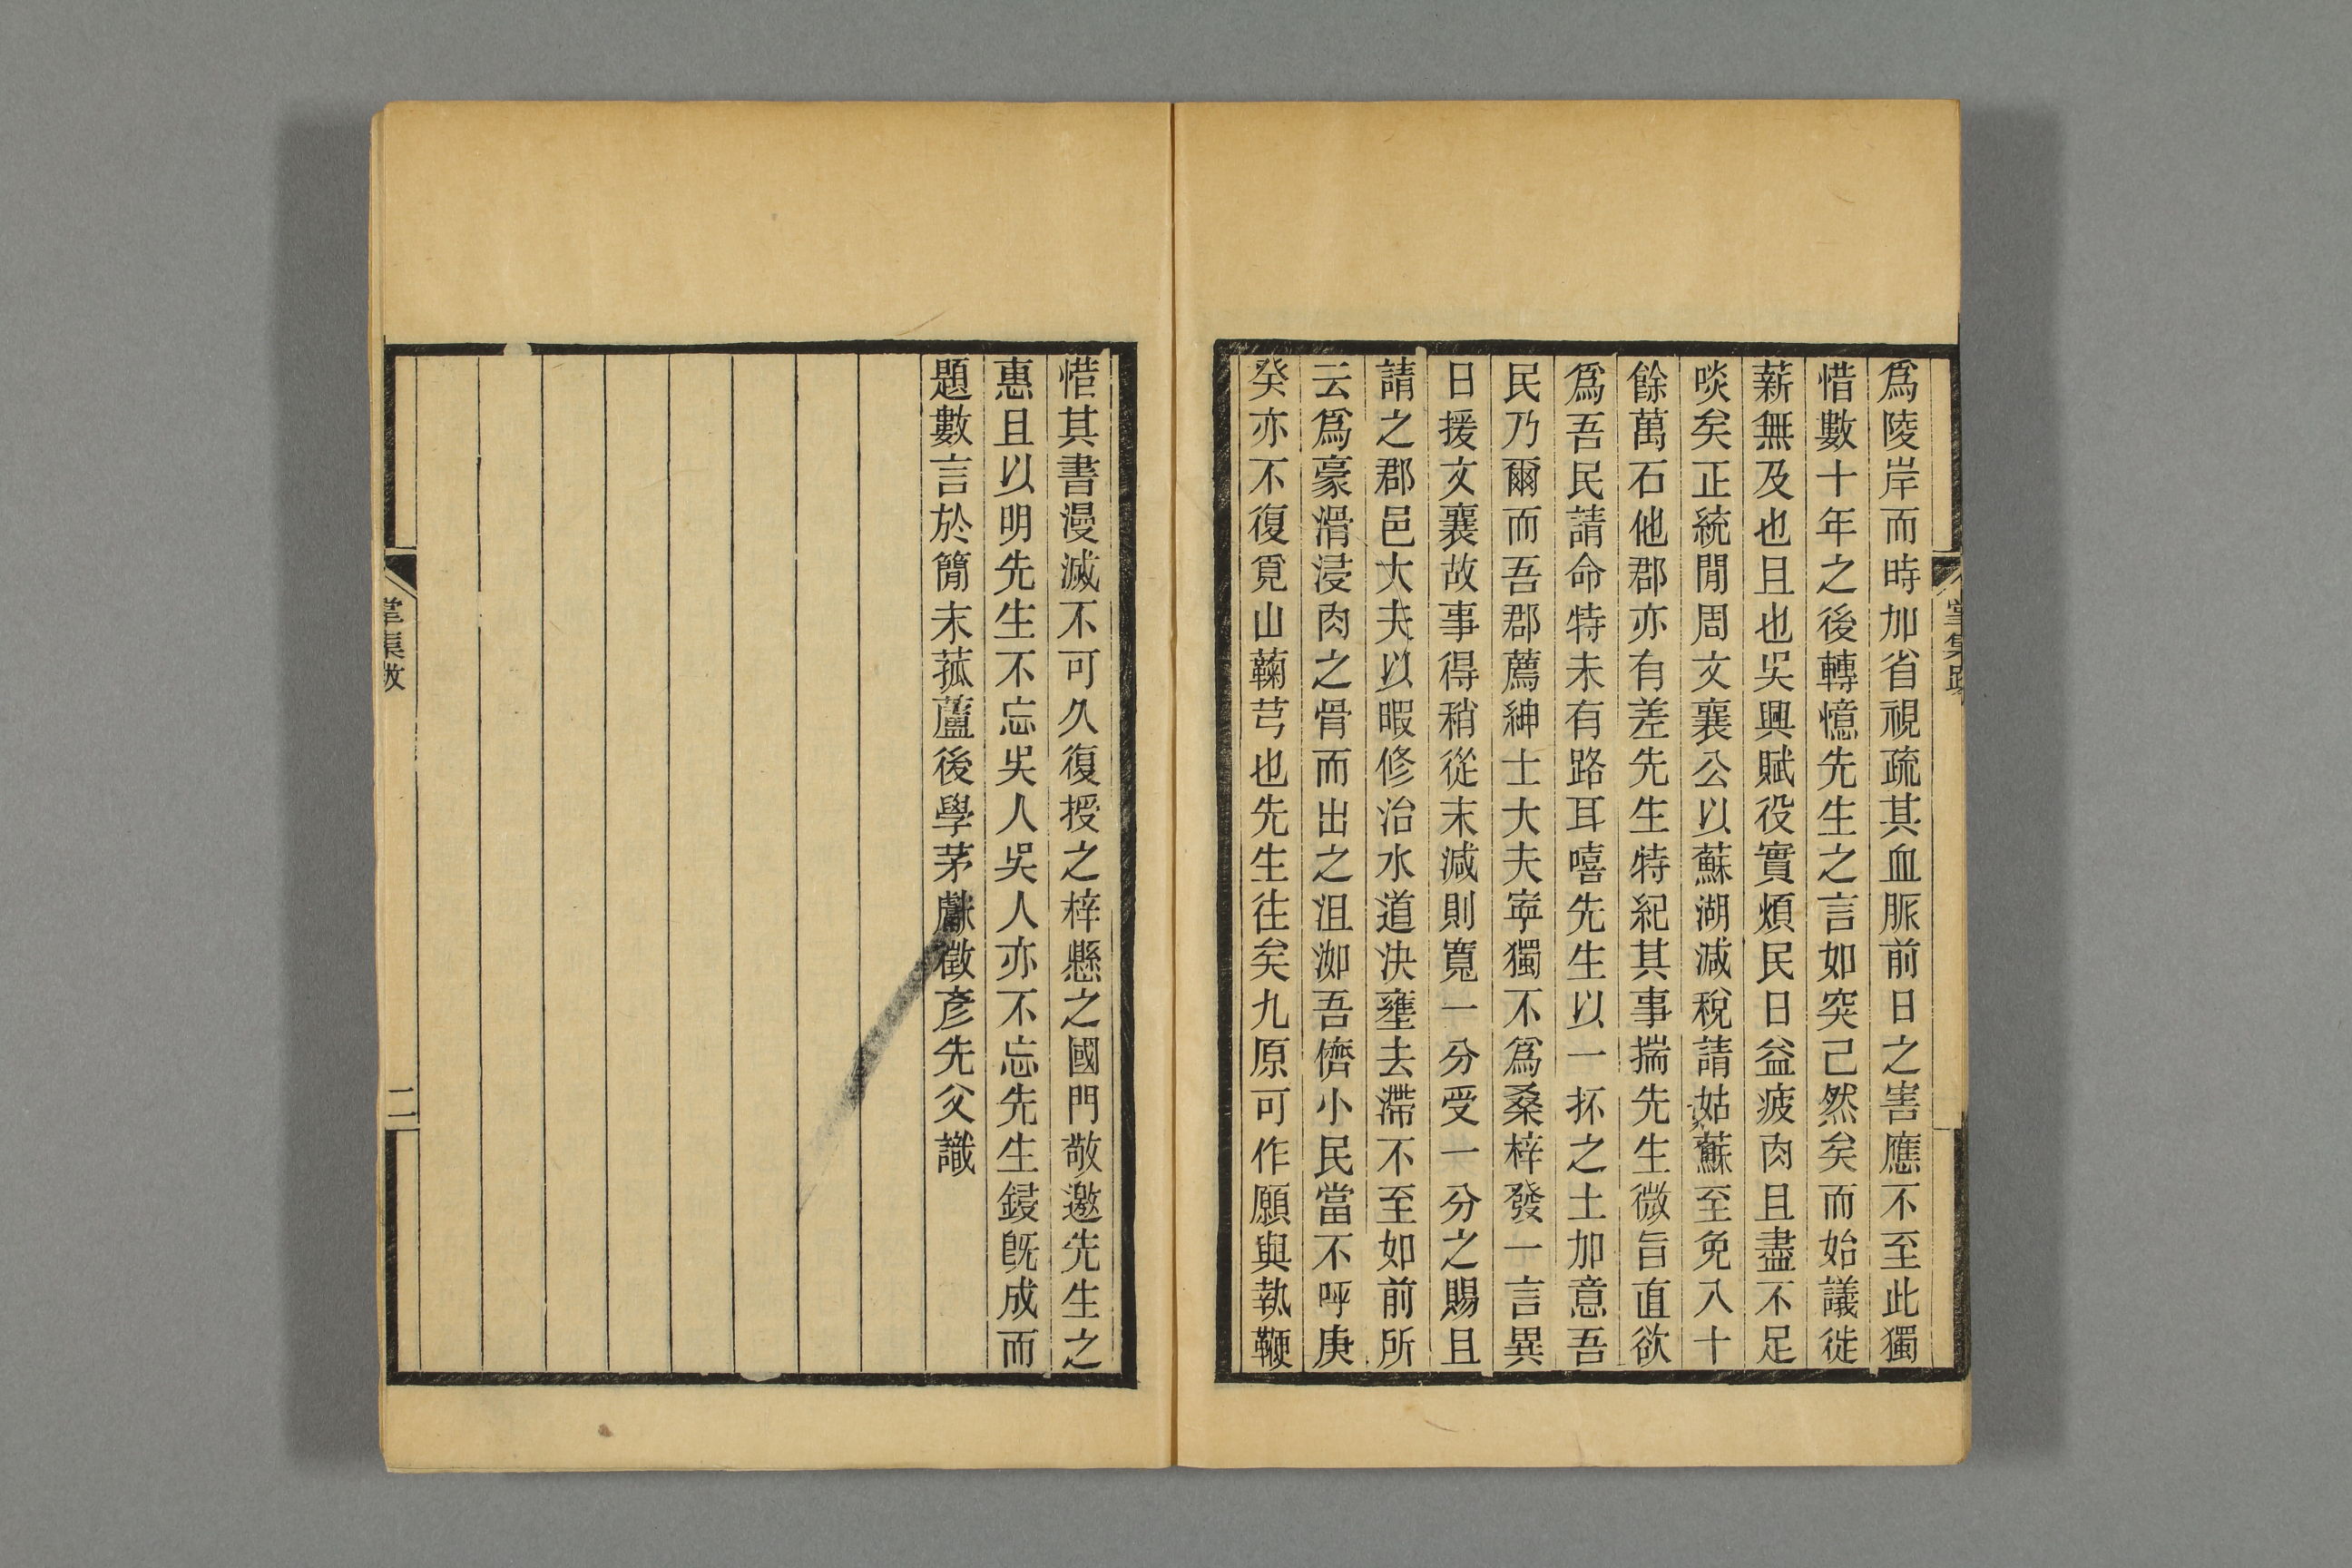 爲陵岸而時加省視疏其血脈前日之害應不至此獨
惜數十年之後轉憶先生之言如突己然矣而始議徙
薪無及也且也吳興賦役實煩民日益疲肉且盡不足
啖矣正統閒周文襄公以蘇湖減稅請姑蘇至免八十
餘萬石他郡亦有差先生特紀其事揣先生微旨直欲
爲吾民請命特未有路耳嘻先生以一抔之土加意吾
民乃爾而吾郡薦紳士大夫寧獨不爲桑梓發一言異
日援文襄故事得稍從末減則寬一分受一分之賜且
請之郡邑大夫以暇修治水道決壅去滯不至如前所
云爲豪滑浸肉之骨而出之沮洳吾儕小民當不呼庚
癸亦不復覓山蘜芎也先生往矣九原可作願與執鞭
惜其書漫滅不可久復授之梓懸之國門敬邀先生之
惠且以明先生不忘吳人吳人亦不忘先生鋟旣成而
題數言於簡末菰蘆後學茅獻徵彥先父識
堂集跋
堂集跋
二